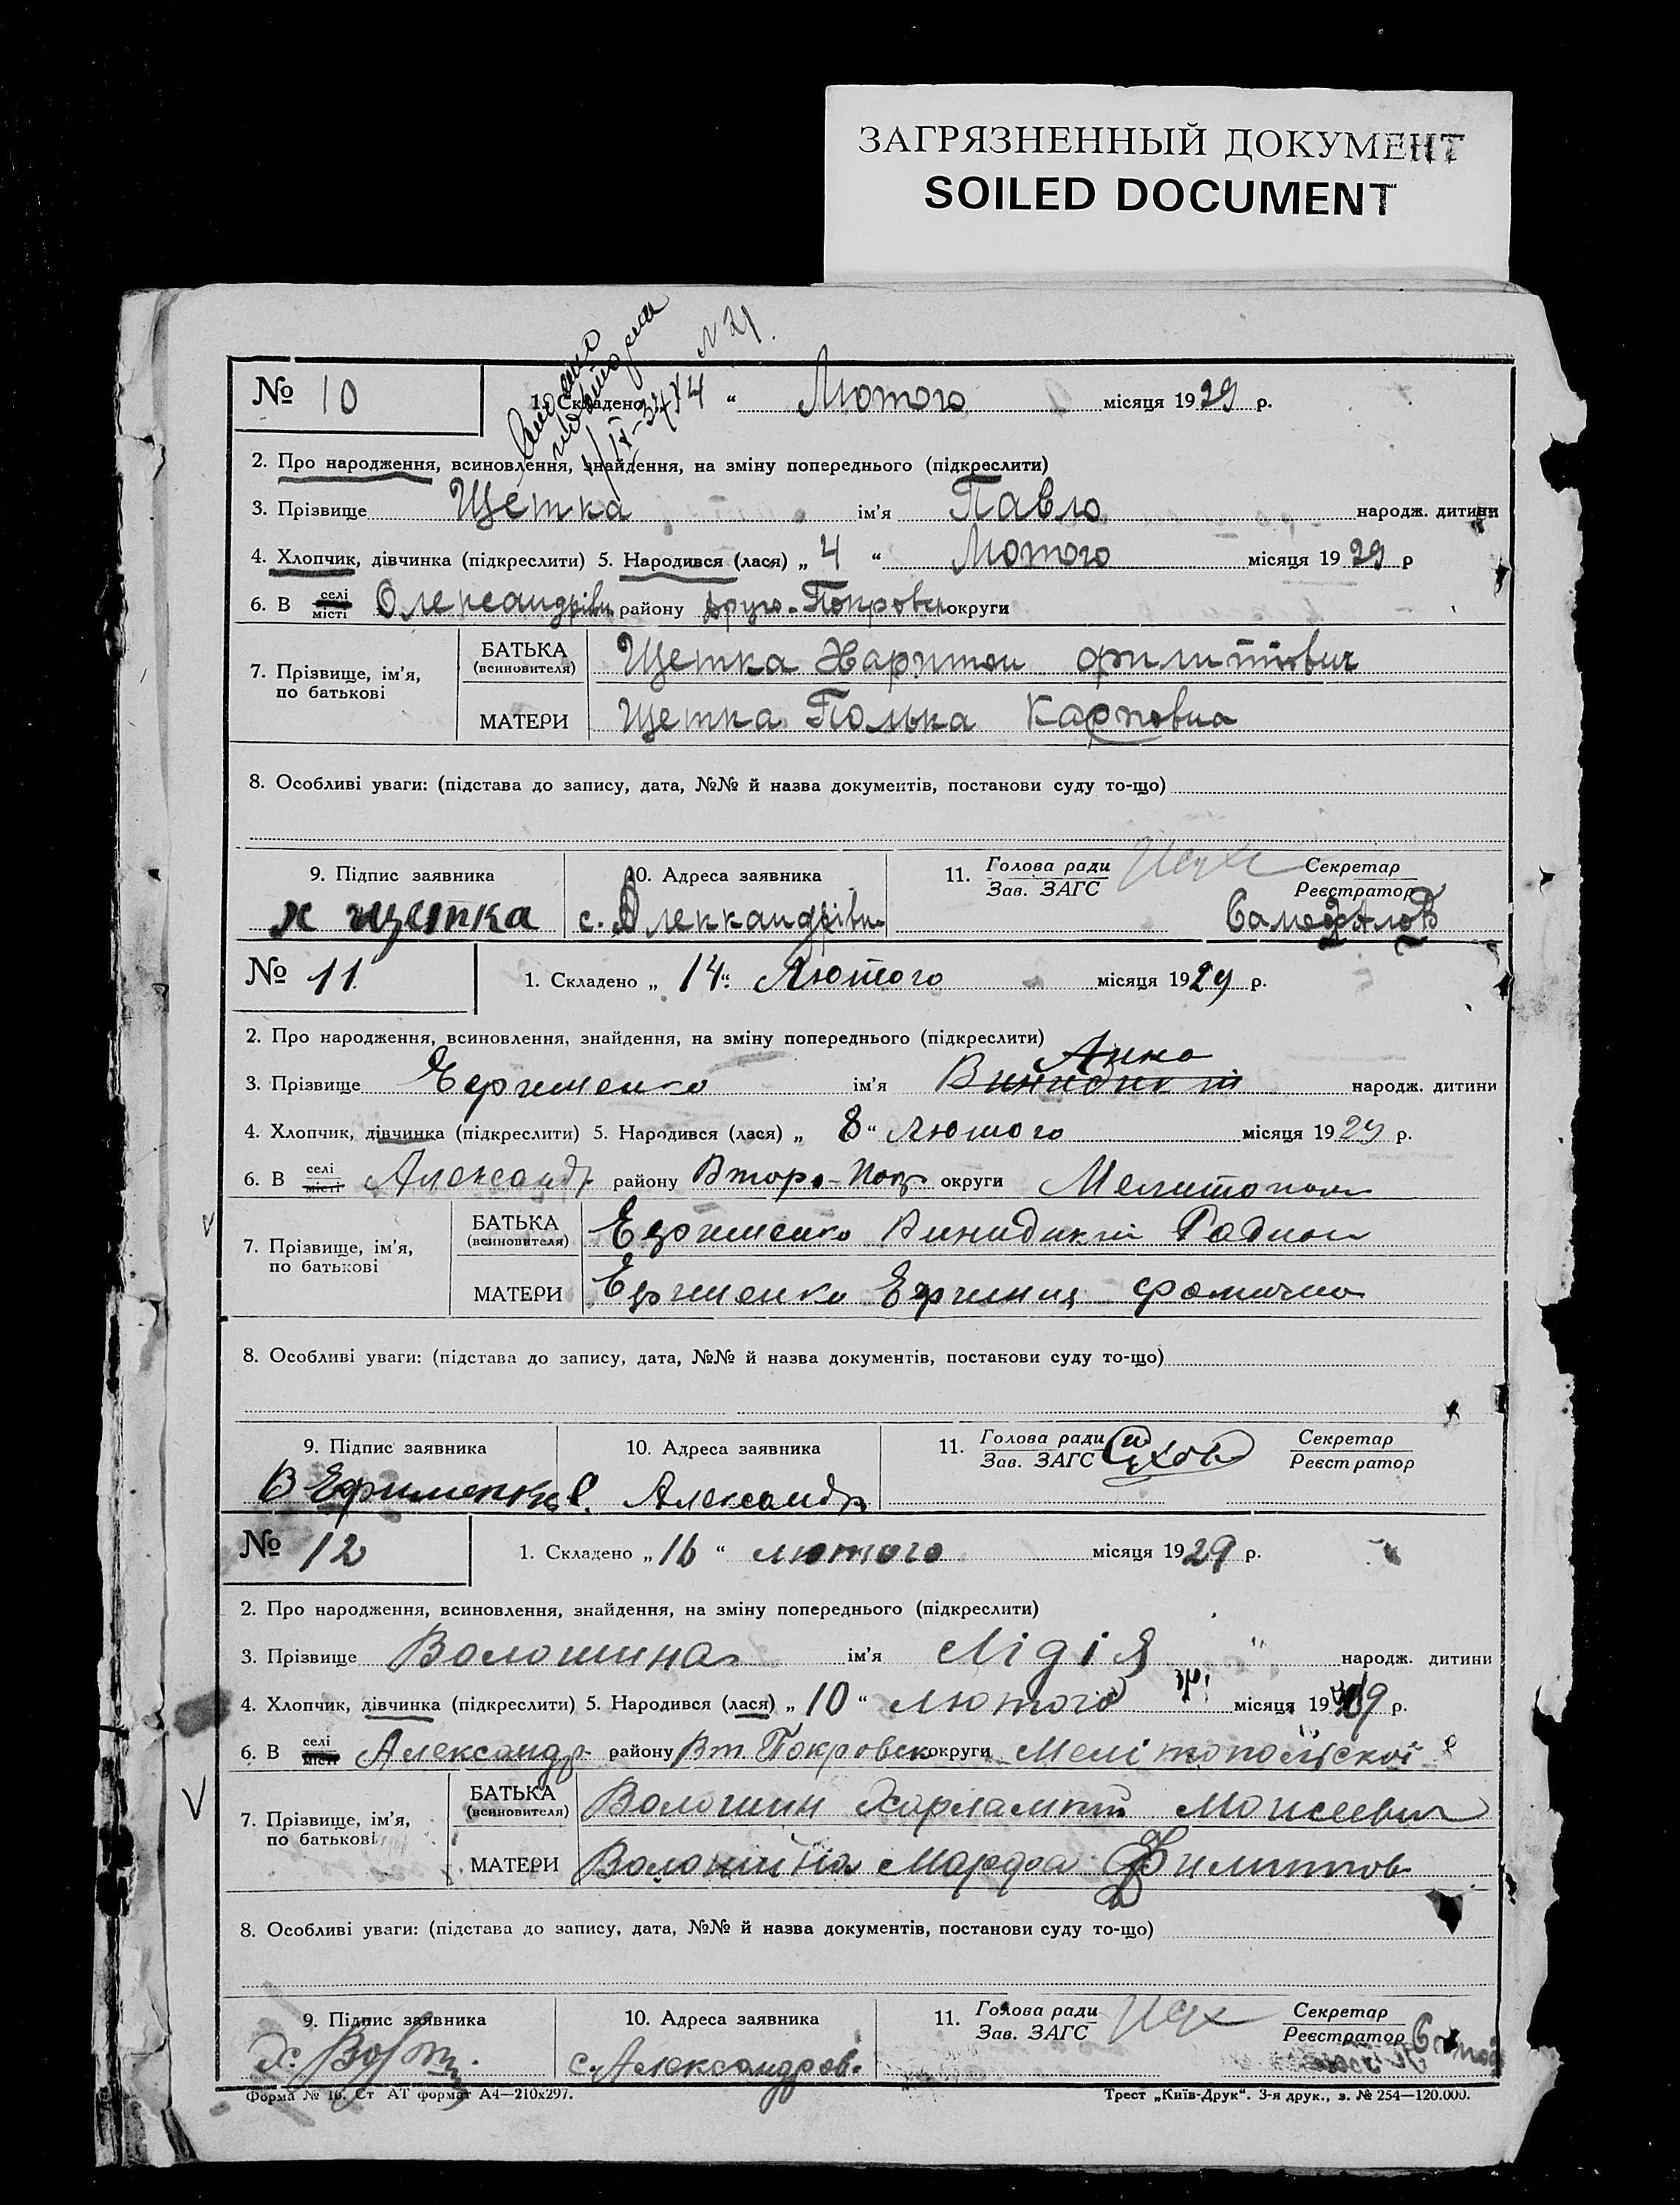 ЗАГРЯЗНЕННЫЙ ДОКУМЕНТ
SOILED DOCUMENT
N 21.
№ 10
1. Складено „ 14 “ Лютого місяця 1929 р.
2. Про народження, всиновлення, знайдення, на зміну попереднього (підкреслити)
3. Прізвище Щётка ім'я Павло народж. дитини
4. Хлопчик, дівчинка (підкреслити) 5. Народився (лася) „ 4 “ Лютого місяця 1929 р
6. В селі місті Олександрівц району Друго-Покровск округи
7. Прізвище, ім'я, по батькові
БАТЬКА (всиновителя) Щетка Харитон филиппович
МАТЕРИ Щетка Полька Карповна
8. Особливі уваги: (підстава до запису, дата, №№ й назва документів, постанови суду то-що)
9. Підпис заявника 10. Адреса заявника 11. Голова ради Зав. ЗАГС Секретар Реєстратор
х щетка с. Алекхандрівк
№ 11.
1. Складено „ 14 “ Лютого місяця 1929 р.
2. Про народження, всиновлення, знайдення, на зміну попереднього (підкреслити)
Анна
3. Прізвище Ефименко ім'я народж. дитини
4. Хлопчик, дівчинка (підкреслити) 5. Народився (лася) „ 8 “ Лютого місяця 1929 р.
6. В селі місті Александр району Второ-Покр округи Мелитопол
7. Прізвище, ім'я, по батькові
БАТЬКА (всиновителя) Ефименко Винидикт Радион
МАТЕРИ Ефименко Ефимия фомична
8. Особливі уваги: (підстава до запису, дата, №№ й назва документів, постанови суду то-що)
9. Підпис заявника 10. Адреса заявника 11. Голова ради Зав. ЗАГС Секретар Реєстратор
В Ефименко с. Александр
№ 12
1. Складено „ 16 “ лютого місяця 1929 р.
2. Про народження, всиновлення, знайдення, на зміну попереднього (підкреслити)
3. Прізвище Волошина ім'я Лідія народж. дитини
4. Хлопчик, дівчинка (підкреслити) 5. Народився (лася) „ 10 “ лютого місяця 1929 р.
6. В селі місті Александр району Вт Покровск округи Мелітопольскої
7. Прізвище, ім'я, по батькові
БАТЬКА (всиновителя) Волошин Харлампий Моисеевич
МАТЕРИ Волошина Марфа Филиппов
8. Особливі уваги: (підстава до запису, дата, №№ й назва документів, постанови суду то-що)
9. Підпис заявника 10. Адреса заявника 11. Голова ради Зав. ЗАГС Секретар Реєстратор
с. Александров.
Форма № 16. Ст АТ формат А4—210х297. Трест „Київ-Друк“. 3-я друк., з. № 254—120.000.